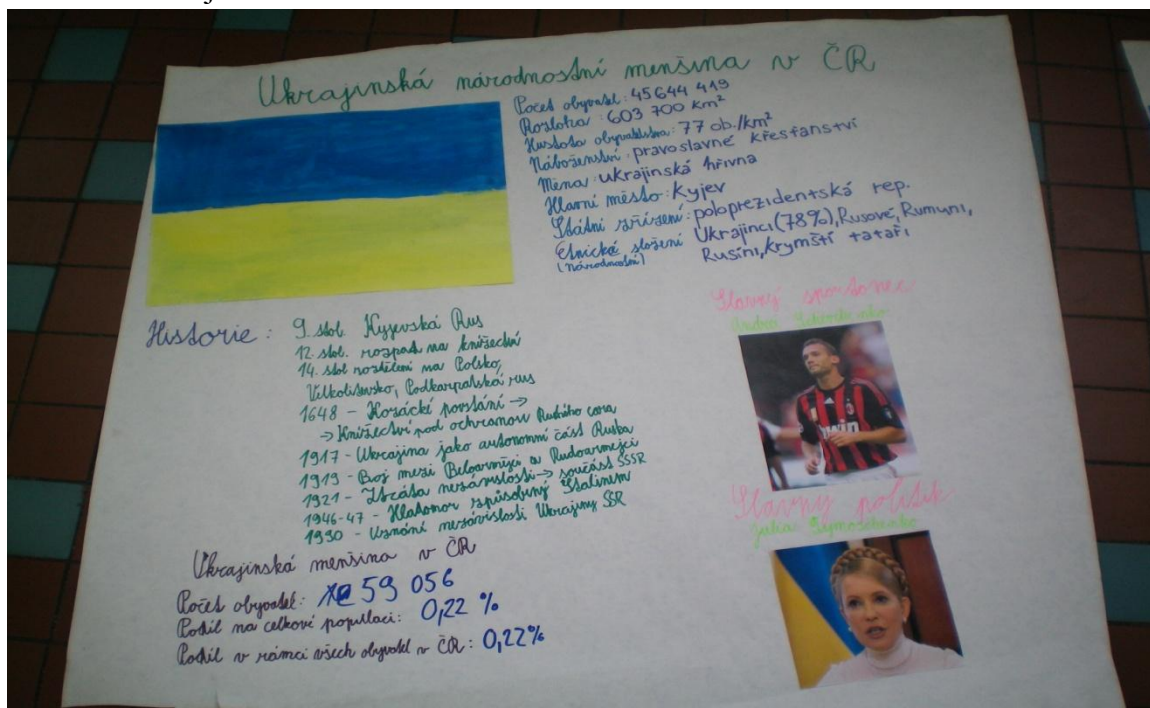 Ukrajinská národnostní menšina v ČR
Počet obyvatel: 45 644 419
Rozloha: 603 700 km²
Hustota obyvatelstva: 77 ob./km²
Náboženství: pravoslavné křesťanství
Měna: ukrajinská hřivna
Hlavní město: Kyjev
Státní zřízení: poloprezidentská rep.
Etnické složení (národnostní) Ukrajinci (78%), Rusové, Rumuni,
Rusíni, krymští tataři
Historie:
9. stol. Kyjevská Rus
12. stol. rozpad na knížectví
14. stol rozdělení na Polsko,
Velkolitevsko, Podkarpatská rus
1648 - Kozácké povstání →
→ Knížectví pod ochranou Ruského cara
1917 - Ukrajina jako autonomní část Ruska
1919 - Boj mezi Běloarmějci a Rudoarmejci
1921 - Ztráta nezávislosti → součást SSSR
1946-47 - Hladomor způsobený Stalinem
1990 - Uznání nezávislosti Ukrajiny SSR
Ukrajinská menšina v ČR
Počet obyvatel: 59 056
Podíl na celkové populaci: 0,22 %
Podíl v rámci všech obyvatel v ČR: 0,22%
Slavný sportovec:
Andrei
Slavný politik:
Julia Tymoschenko